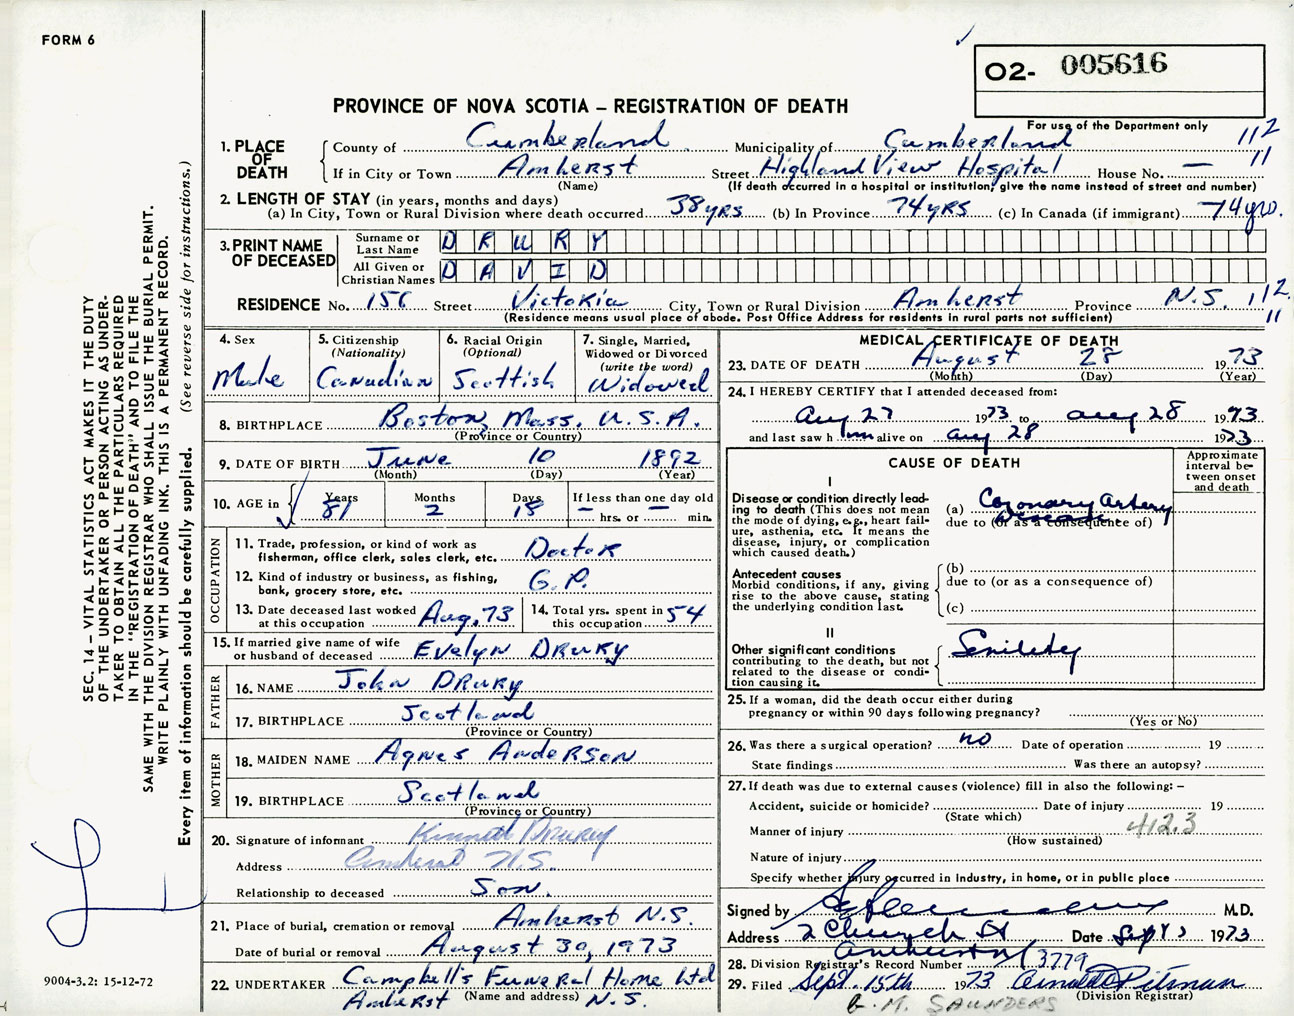 FORM 6
O2- 005616
PROVINCE OF NOVA SCOTIA – REGISTRATION OF DEATH
For use of the Department only
1. PLACE OF DEATH
County of Cumberland Municipality of Cumberland 112
If in City or Town Amherst Street Highland View Hospital House No. — 11
(Name) (If death occurred in a hospital or institution, give the name instead of street and number)
2. LENGTH OF STAY (in years, months and days)
(a) In City, Town or Rural Division where death occurred 38 yrs (b) In Province 74 yrs (c) In Canada (if immigrant) 74 yrs.
3. PRINT NAME OF DECEASED
Surname or Last Name DRURY
All Given or Christian Names DAVID
RESIDENCE No. 156 Street Victoria City, Town or Rural Division Amherst Province N.S. 112
(Residence means usual place of abode. Post Office Address for residents in rural parts not sufficient) 11
4. Sex
Male
5. Citizenship (Nationality)
Canadian
6. Racial Origin (Optional)
Scottish
7. Single, Married, Widowed or Divorced (write the word)
Widowed
8. BIRTHPLACE Boston, Mass. U.S.A.
(Province or Country)
9. DATE OF BIRTH June 10 1892
(Month) (Day) (Year)
10. AGE in
Years 81
Months 2
Days 18
If less than one day old
— hrs. or — min.
OCCUPATION
11. Trade, profession, or kind of work as fisherman, office clerk, sales clerk, etc. Doctor
12. Kind of industry or business, as fishing, bank, grocery store, etc. G.P.
13. Date deceased last worked at this occupation Aug. 73
14. Total yrs. spent in this occupation 54
15. If married give name of wife or husband of deceased Evelyn Drury
FATHER
16. NAME John Drury
17. BIRTHPLACE Scotland
(Province or Country)
MOTHER
18. MAIDEN NAME Agnes Anderson
19. BIRTHPLACE Scotland
(Province or Country)
20. Signature of informant Kenneth Drury
Address Amherst N.S.
Relationship to deceased Son.
21. Place of burial, cremation or removal Amherst N.S.
Date of burial or removal August 30, 1973
22. UNDERTAKER Campbell's Funeral Home Ltd
(Name and address)
Amherst N.S.
MEDICAL CERTIFICATE OF DEATH
23. DATE OF DEATH August 28 1973
(Month) (Day) (Year)
24. I HEREBY CERTIFY that I attended deceased from:
Aug 27 1973 to Aug 28 1973
and last saw him alive on Aug 28 1973
CAUSE OF DEATH
Approximate interval between onset and death
I
Disease or condition directly leading to death (This does not mean the mode of dying, e.g., heart failure, asthenia, etc. It means the disease, injury, or complication which caused death.)
(a) Coronary Artery Disease
due to (or as a consequence of)
Antecedent causes
Morbid conditions, if any, giving rise to the above cause, stating the underlying condition last.
(b)
due to (or as a consequence of)
(c)
II
Other significant conditions contributing to the death, but not related to the disease or condition causing it.
Senility
25. If a woman, did the death occur either during pregnancy or within 90 days following pregnancy?
(Yes or No)
26. Was there a surgical operation? no Date of operation 19
State findings Was there an autopsy?
27. If death was due to external causes (violence) fill in also the following: –
Accident, suicide or homicide? Date of injury 19
(State which)
Manner of injury 412.3
(How sustained)
Nature of injury
Specify whether injury occurred in Industry, in home, or in public place
Signed by M.D.
Address 2 Church St Date Sept 1973
Amherst
28. Division Registrar's Record Number 3779
29. Filed Sept. 15th 1973 Pitman
(Division Registrar)
G. M. SAUNDERS
SEC. 14 – VITAL STATISTICS ACT MAKES IT THE DUTY
OF THE UNDERTAKER OR PERSON ACTING AS UNDER-
TAKER TO OBTAIN ALL THE PARTICULARS REQUIRED
IN THE "REGISTRATION OF DEATH" AND TO FILE THE
SAME WITH THE DIVISION REGISTRAR WHO SHALL ISSUE THE BURIAL PERMIT.
WRITE PLAINLY WITH UNFADING INK. THIS IS A PERMANENT RECORD.
Every item of information should be carefully supplied. (See reverse side for instructions.)
9004-3.2: 15-12-72